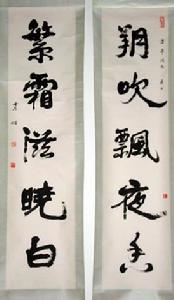 朔吹飄夜香
繁霜滋曉白